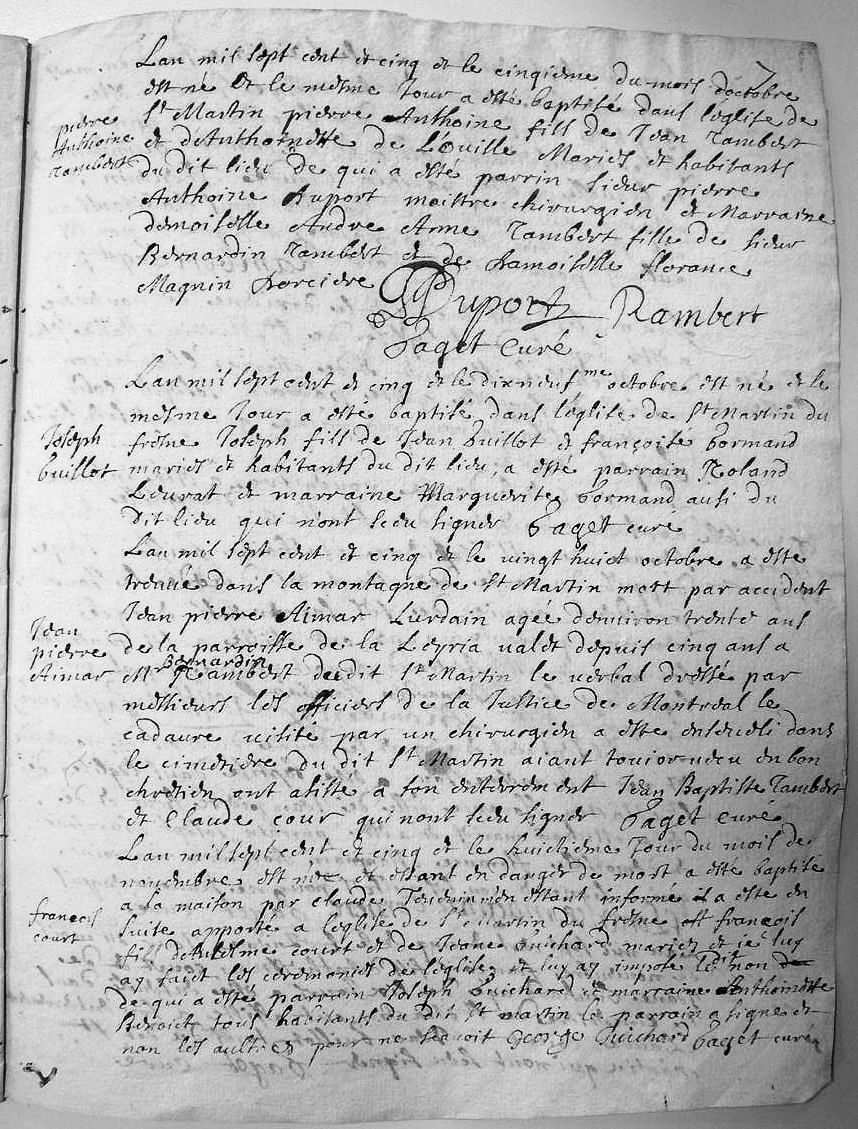 7
Lan mil sept cent et cinq et le cinqieme du mois doctobre
est né et le mesme Jour a esté baptisé dans l'eglise de
pierre Anthoine Rambert
St Martin pierre Anthoine fils de Jean Rambert
et dAnthoinette de Louille Mariés et habitants
du dit lieu de qui a esté parrin sieur pierre
Anthoine Duport maistre chirurgien et Marraine
demoiselle Andre Anne Rambert fille de sieur
Bernardin Rambert et de Damoiselle florance
Magnin Dorciere
Duport Rambert
paget curé
Lan mil sept cent et cinq et le dixneufme octobre est né et le
mesme Jour a esté baptisé dans l'eglise de St Martin du
Joseph guillot
fresne Joseph fils de Jean guillot et françoise gormand
mariés et habitants du dit lieu, a esté parrain Roland
Leurat et marraine Marguerite gormand aussi du
dit lieu qui n'ont sceu signer paget curé
Lan mil sept cent et cinq et le vingt huict octobre a esté
treuué dans la montagne de St Martin mort par accident
Jean pierre Aimar
Jean pierre Aimar Lurdain agée denuiron trente ans
de la parroisse de la Leyria valet depuis cinq ans a
Mr bernardin Rambert dudit St Martin le verbal dressé par
messieurs les officiers de la Justice de Montreal le
cadaure visité par un chirurgien a esté enseueli dans
le cimetiere du dit St Martin aiant toujor vecu en bon
chretien ont asisté a son enterrement Jean Baptiste Rambert
et Claude cour qui nont sceu signer paget curé
Lan mil sept cent et cinq et le huictieme Jour du mois de
nouembre est née et estant en danger de mort a esté baptisé
a la maison par claude men estant informé il a esté en
francois court
suite apporté a l'eglise de St martin du fresne francois
fils dAnselme court et de Jeane guichard mariés et je luy
ay faict les ceremonies de l'eglise et luy ay imposé le dit non
de qui a esté parrain Joseph guichard et marraine Anthoinette
Benoict tous habitants du dit St martin le parrain a signé et
non les aultres pour ne scauoir george Guichard paget curé